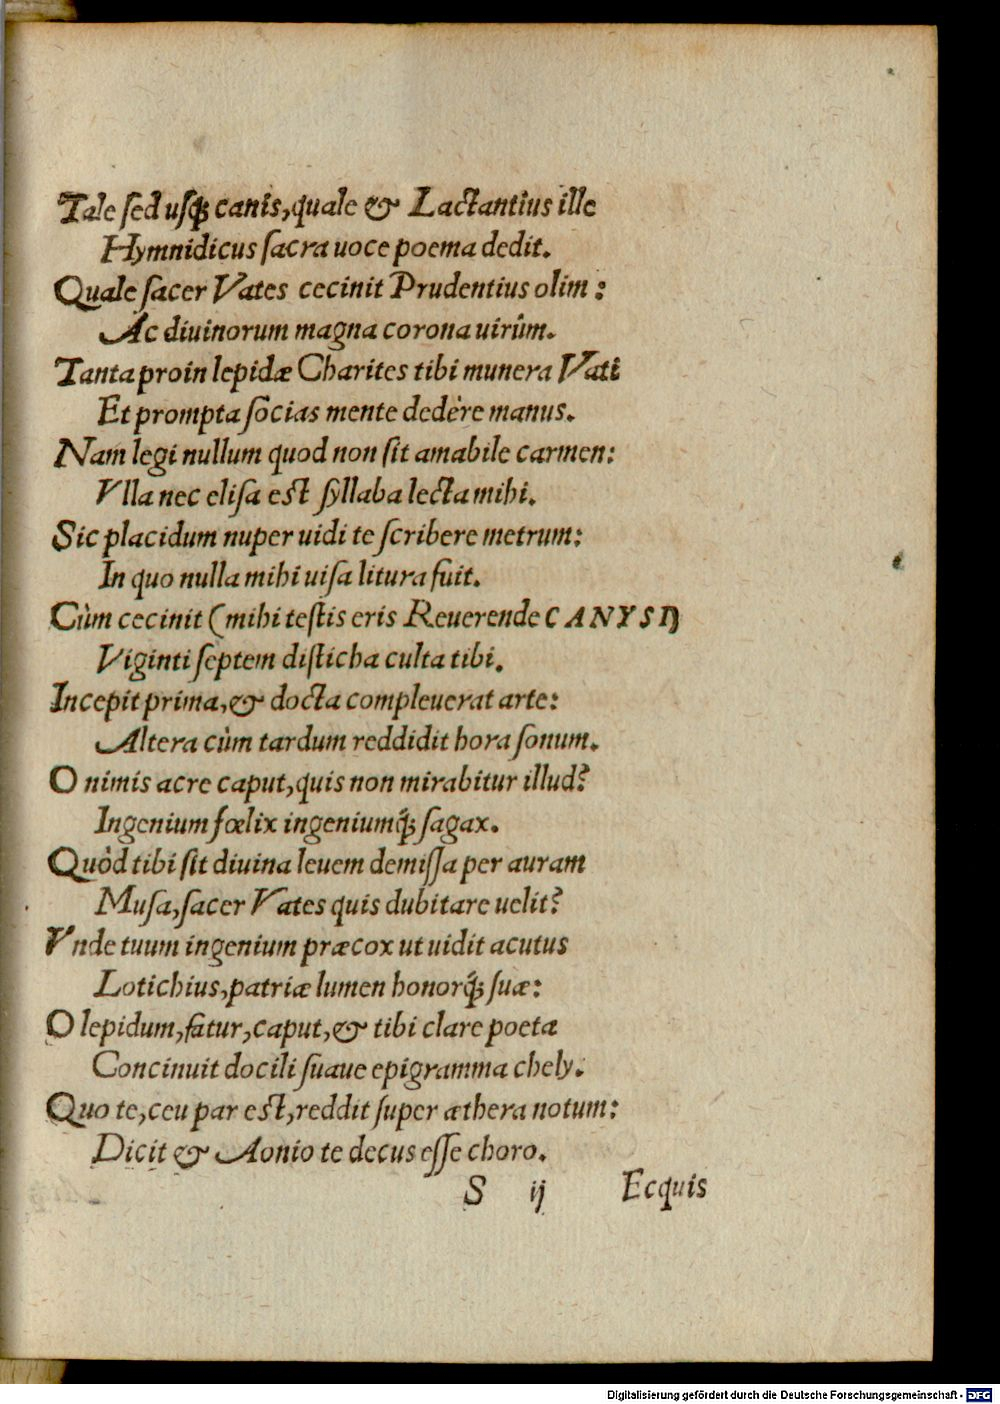 Tale ſed uſq́ꝫ canis, quale & Lactantius ille
Hymnidicus ſacra uoce poema dedit.
Quale ſacer Vates cecinit Prudentius olim:
Ac diuinorum magna corona uirûm.
Tanta proin lepidæ Charites tibi munera Vati
Et prompta ſocias mente dedêre manus.
Nam legi nullum quod non ſit amabile carmen:
Vlla nec eliſa eſt ſyllaba lecta mihi.
Sic placidum nuper uidi te ſcribere metrum:
In quo nulla mihi uiſa litura fuit.
Cùm cecinit (mihi teſtis eris Reuerende CANYSI)
Viginti ſeptem diſticha culta tibi.
Incepit prima, & docta compleuerat arte:
Altera cùm tardum reddidit hora ſonum.
O nimis acre caput, quis non mirabitur illud?
Ingenium fœlix ingeniumq́ꝫ ſagax.
Quòd tibi ſit diuina leuem demiſſa per auram
Muſa, ſacer Vates quis dubitare uelit?
Vnde tuum ingenium præcox ut uidit acutus
Lotichius, patriæ lumen honorq́ꝫ ſuæ:
O lepidum, fatur, caput, & tibi clare poeta
Concinuit docili ſuaue epigramma chely.
Quo te, ceu par eſt, reddit ſuper æthera notum:
Dicit & Aonio te decus eſſe choro.
S ij Ecquis
Digitalisierung gefördert durch die Deutsche Forschungsgemeinschaft - DFG